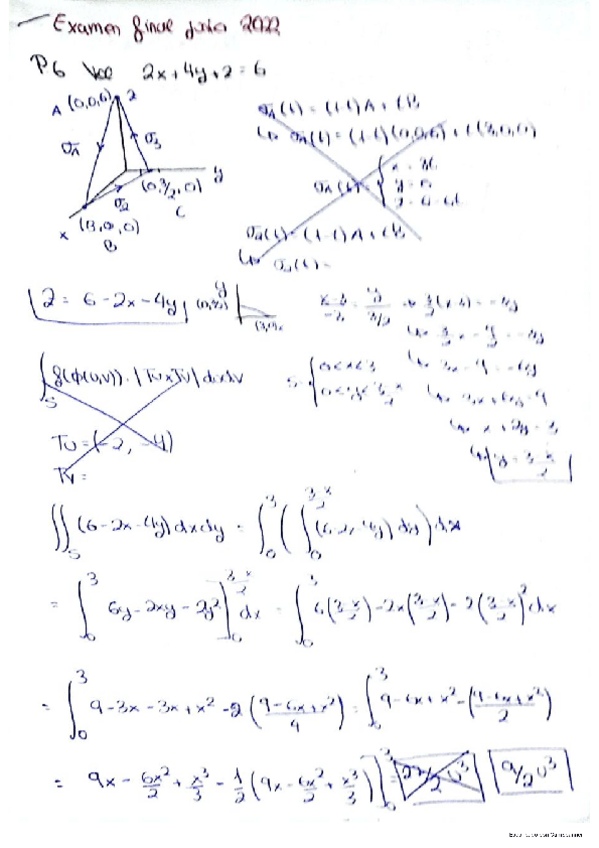 Examen final julio 2022
P6 2x+4y+z=6
A (0,0,6) z
σ1 σ3
σ2 (0,3/2,0) y
C
x (3,0,0)
B
σ1(t) = (1-t)A + tB
↳ σ1(t) = (1-t)(0,0,6) + t(3,0,0)
σ1(t) = { x = 3t
y = 0
z = 6-6t
σ2(t) = (1-t)A + tB
↳ σ2(t) =
z = 6-2x-4y
y
(3,0) x
(x-3)/(-3) = y/(3/2)
∫_S f(ϕ(u,v))·|Tu×Tv| dudv
S = { 0<x<3
0<y<(3-x)/2
↳ x+2y=3
↳ y = (3-x)/2
Tu = (-2, -4)
Tv =
∬_S (6-2x-4y) dxdy = ∫_0^3 ( ∫_0^{(3-x)/2} (6-2x-4y) dy ) dx
= ∫_0^3 6y-2xy-2y² ]_0^{(3-x)/2} dx = ∫_0^3 6((3-x)/2)-2x((3-x)/2)-2((3-x)/2)² dx
= ∫_0^3 9-3x-3x+x²-2((9-6x+x²)/4) = ∫_0^3 9-6x+x²-((9-6x+x²)/2)
= 9x - 6x²/2 + x³/3 - 1/2(9x - 6x²/2 + x³/3) ]_0^3 = 9/2 u³